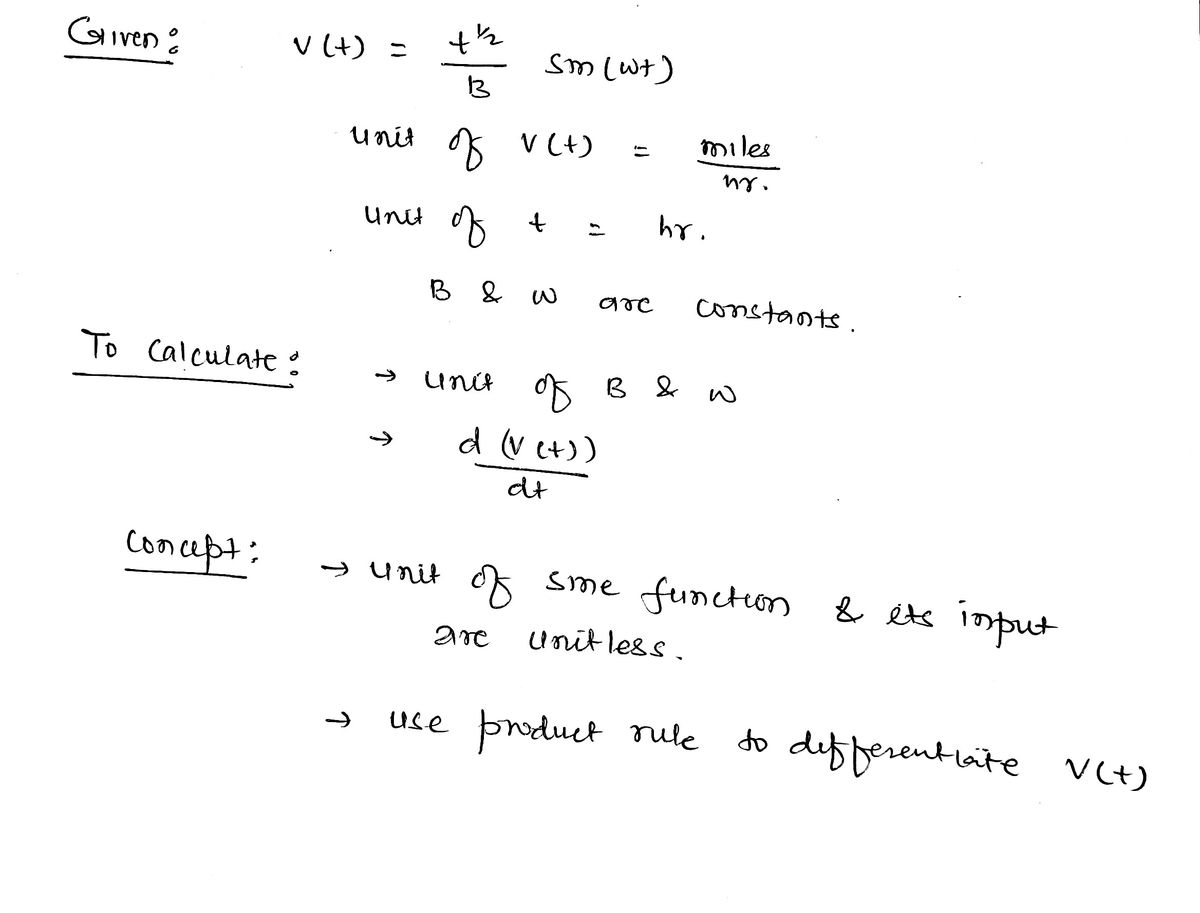 Given: V(t) = t^1/2 / B sin(wt)
unit of V(t) = miles / hr.
unit of t = hr.
B & w are constants.
To Calculate: → unit of B & w
→ d(V(t)) / dt
Concept: → unit of sine function & its input
are unitless.
→ use product rule to differentiate V(t)